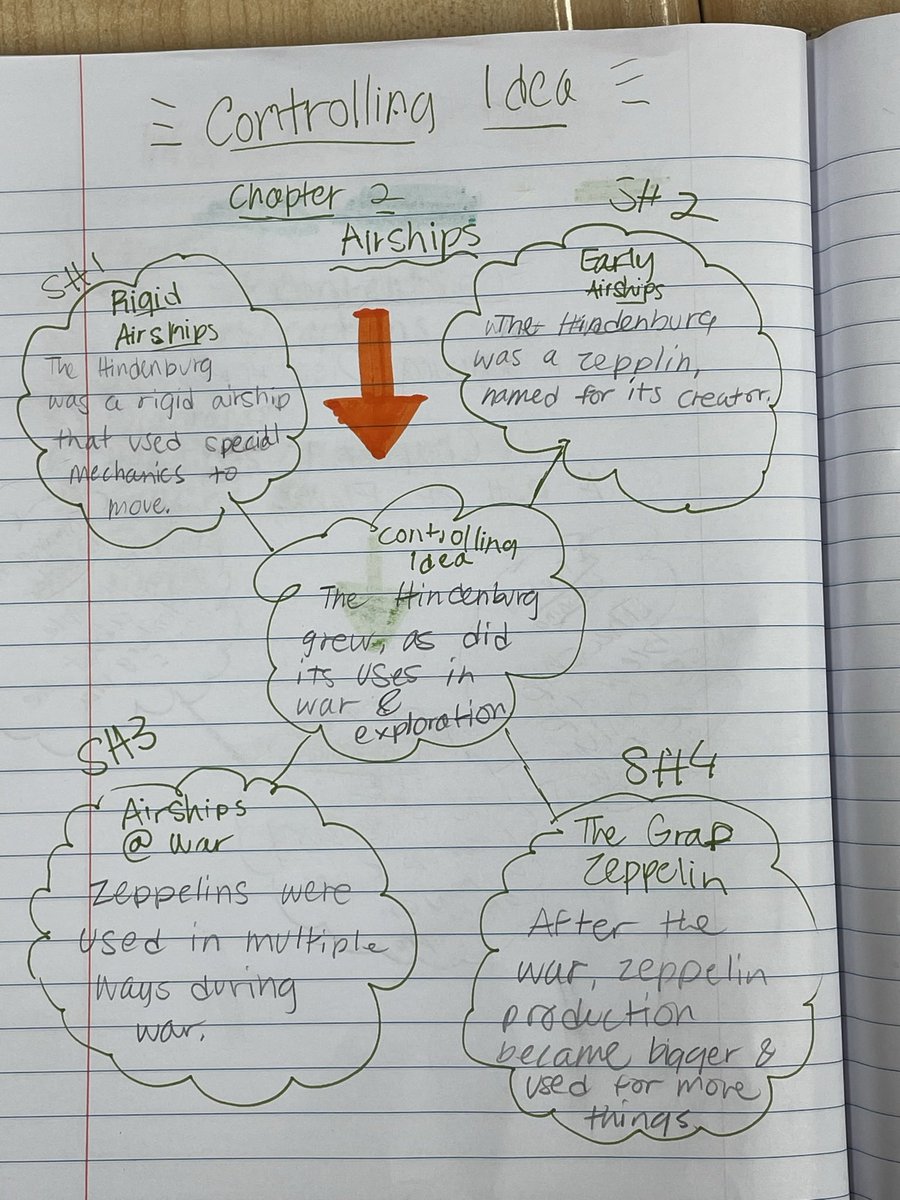 Controlling Idea
Chapter 2
Airships
SH1
Rigid
Airships
The Hindenburg
was a rigid airship
that used special
mechanics to
move.
SH2
Early
Airships
The Hindenburg
was a zepplin,
named for its creator.
Controlling
Idea
The Hindenburg
grew, as did
its uses in
war &
exploration
SH3
Airships
@ war
Zeppelins were
used in multiple
ways during
war.
SH4
The Graf
Zeppelin
After the
war, zeppelin
production
became bigger &
used for more
things.